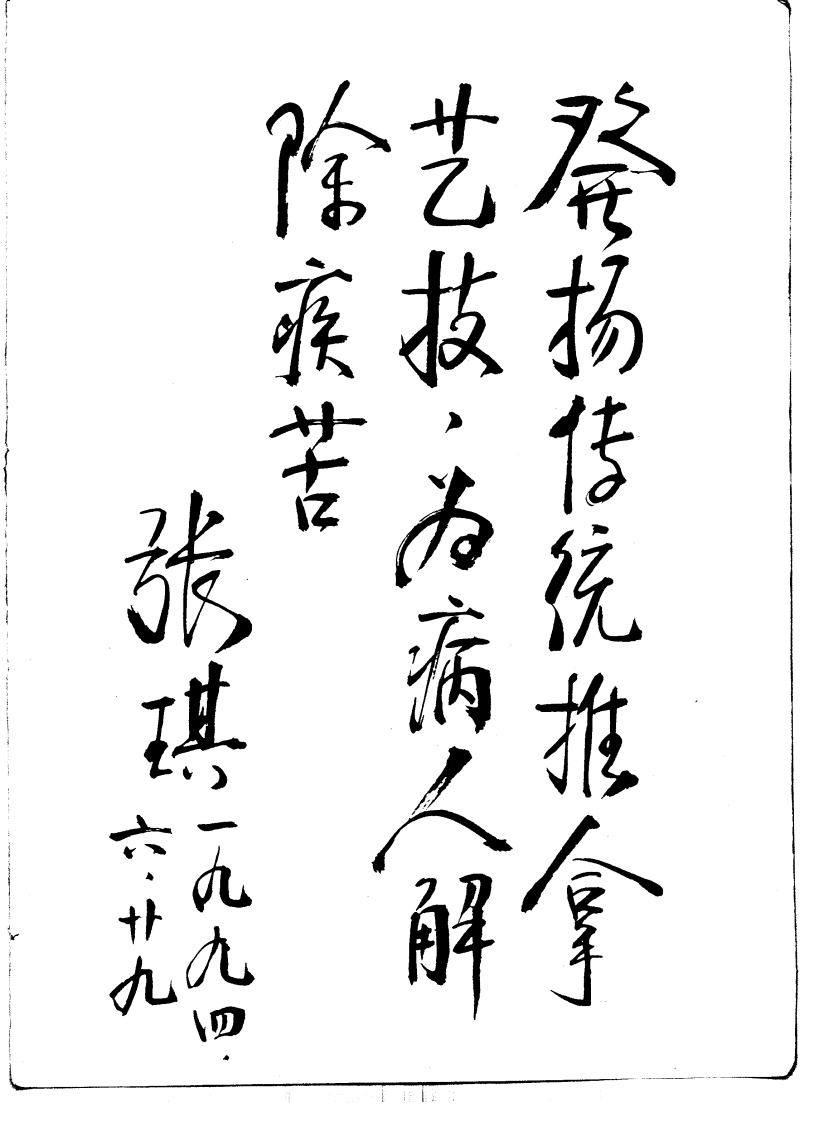 發扬传统推拿
艺技、为病人解
除疾苦
张琪
一九九四.
六.廿九